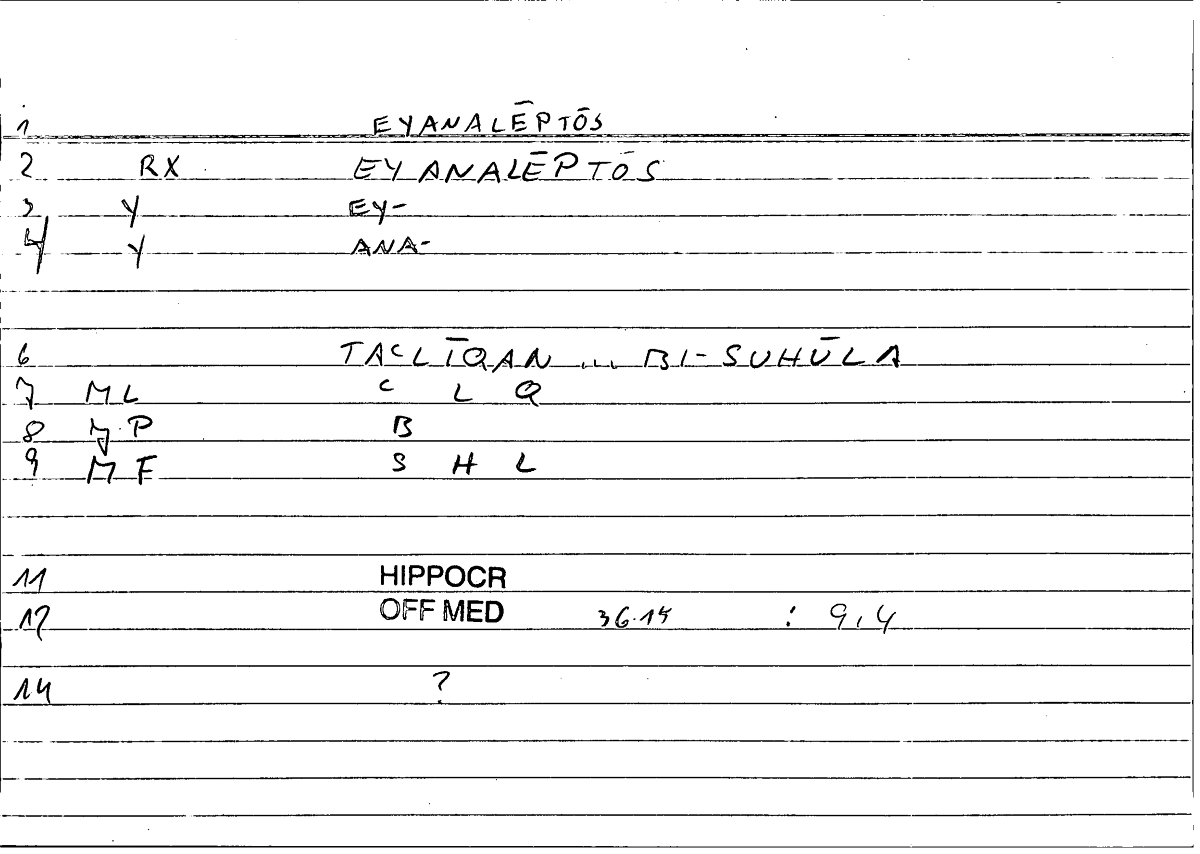 1 EYANALĒPTŌS
2 RX EYANALĒPTŌS
3 Y EY-
4 Y ANA-
6 TAʿLĪQAN ... BI-SUHŪLA
7 ML ʿ L Q
8 MP B
9 MF S H L
11 HIPPOCR
12 OFF MED 36.14 : 9,4
14 ?